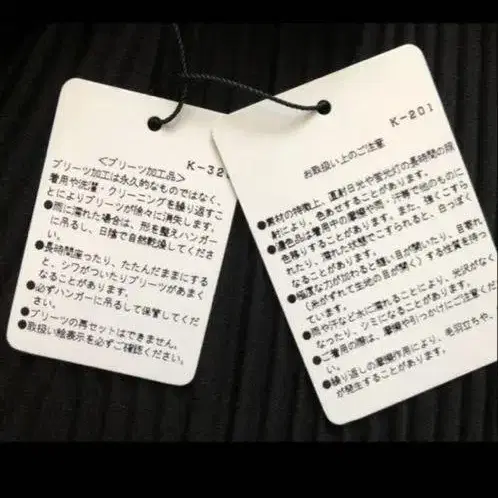 ＜プリーツ加工品＞ K-32
プリーツ加工は永久的なものではなく、
着用や洗濯・クリーニングを繰り返すこ
とによりプリーツが徐々に消失します。
●雨に濡れた場合は、形を整えハンガー
に吊るし、日陰で自然乾燥してくださ
い。
●長時間座ったり、たたんだままにする
と、シワがついたりプリーツがあまく
なることがあります。
●必ずハンガーに吊るして保管してくだ
さい。
●プリーツの再セットはできません。
●取扱い絵表示を必ずご確認ください。
K-201
お取扱い上のご注意
●素材の特徴上、直射日光や蛍光灯の長時間の照
射により、色あせすることがあります。
●濃色品は着用中の摩擦や雨・汗等で他のものに
色移りすることがあります。また、強くこすら
れたり、濡れた状態でこすられると、白っぽく
なることがあります。
●極度な力が加わると縫い目が開いたり、目寄れ
（糸がずれて生地の目が開く）する性質を持っ
ています。
●雨や汗など水に濡れることにより、光沢がなく
なったり、シミになることがあります。
●ご着用の際は、摩擦や引っかけにご注意くだ
さい。
●繰り返しの摩擦作用により、毛羽立ちや、
が発生することがあります。